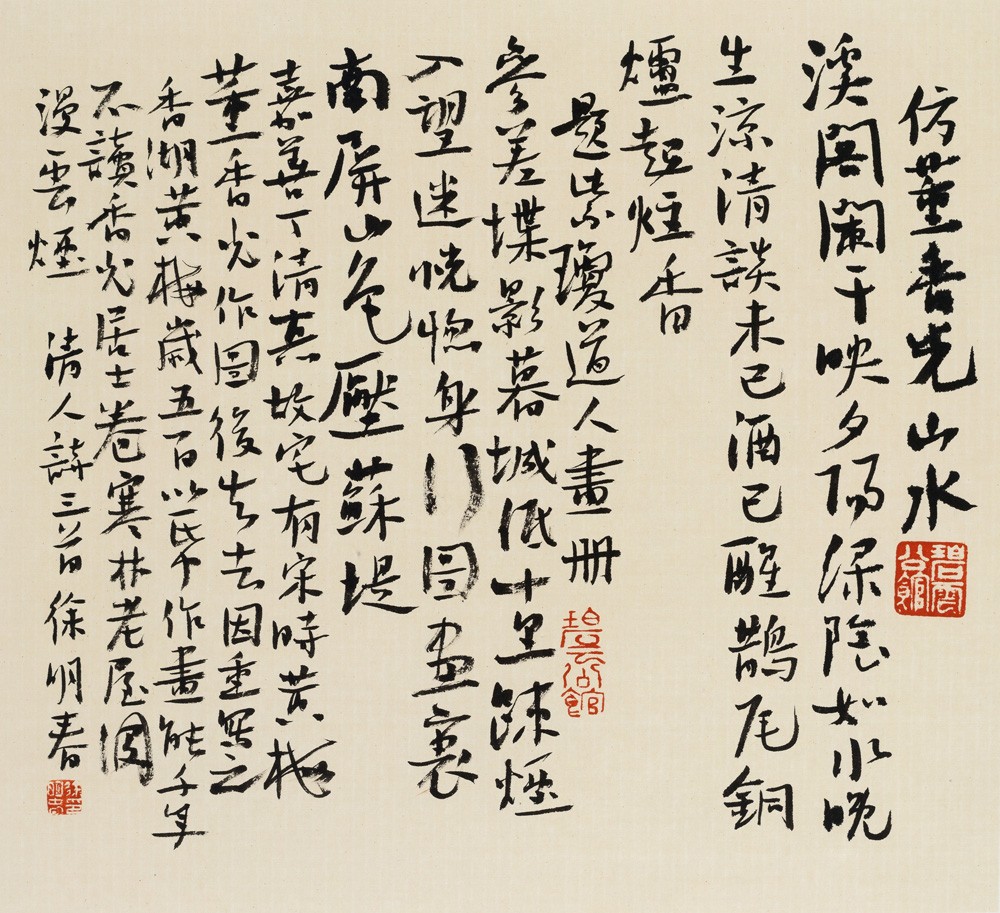 仿董香光山水
碧雲公館
溪閣闌干映夕陽綠陰如水晚
生涼清談未已酒已醒鵲尾銅
爐起炷香
題紫瓊道人畫冊
碧云公館
參差堞影暮城低十里疎煙
入望迷恍惚身行圖畫裏
南屏山色壓蘇堤
嘉善丁清真故宅有宋時黃梅
董香光作圖後失去因重寫之
香湖黃梅歲五百以帋作畫能千年
不讀香光居士卷寒林老屋圍
漫雲煙 清人詩三首 徐明春